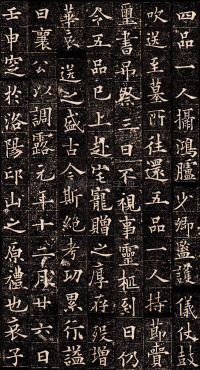 四品一人攝鴻臚少卿監護儀仗鼓
吹送至墓所往還五品一人持節齎
璽書弔祭三日不視事靈柩到日仍
令五品已上赴宅寵贈之厚存歿增
華哀送之盛古今斯絕考功累行諡
曰襄公以調露元年十二月廿六日
壬申窆於洛陽邙山之原禮也哀子